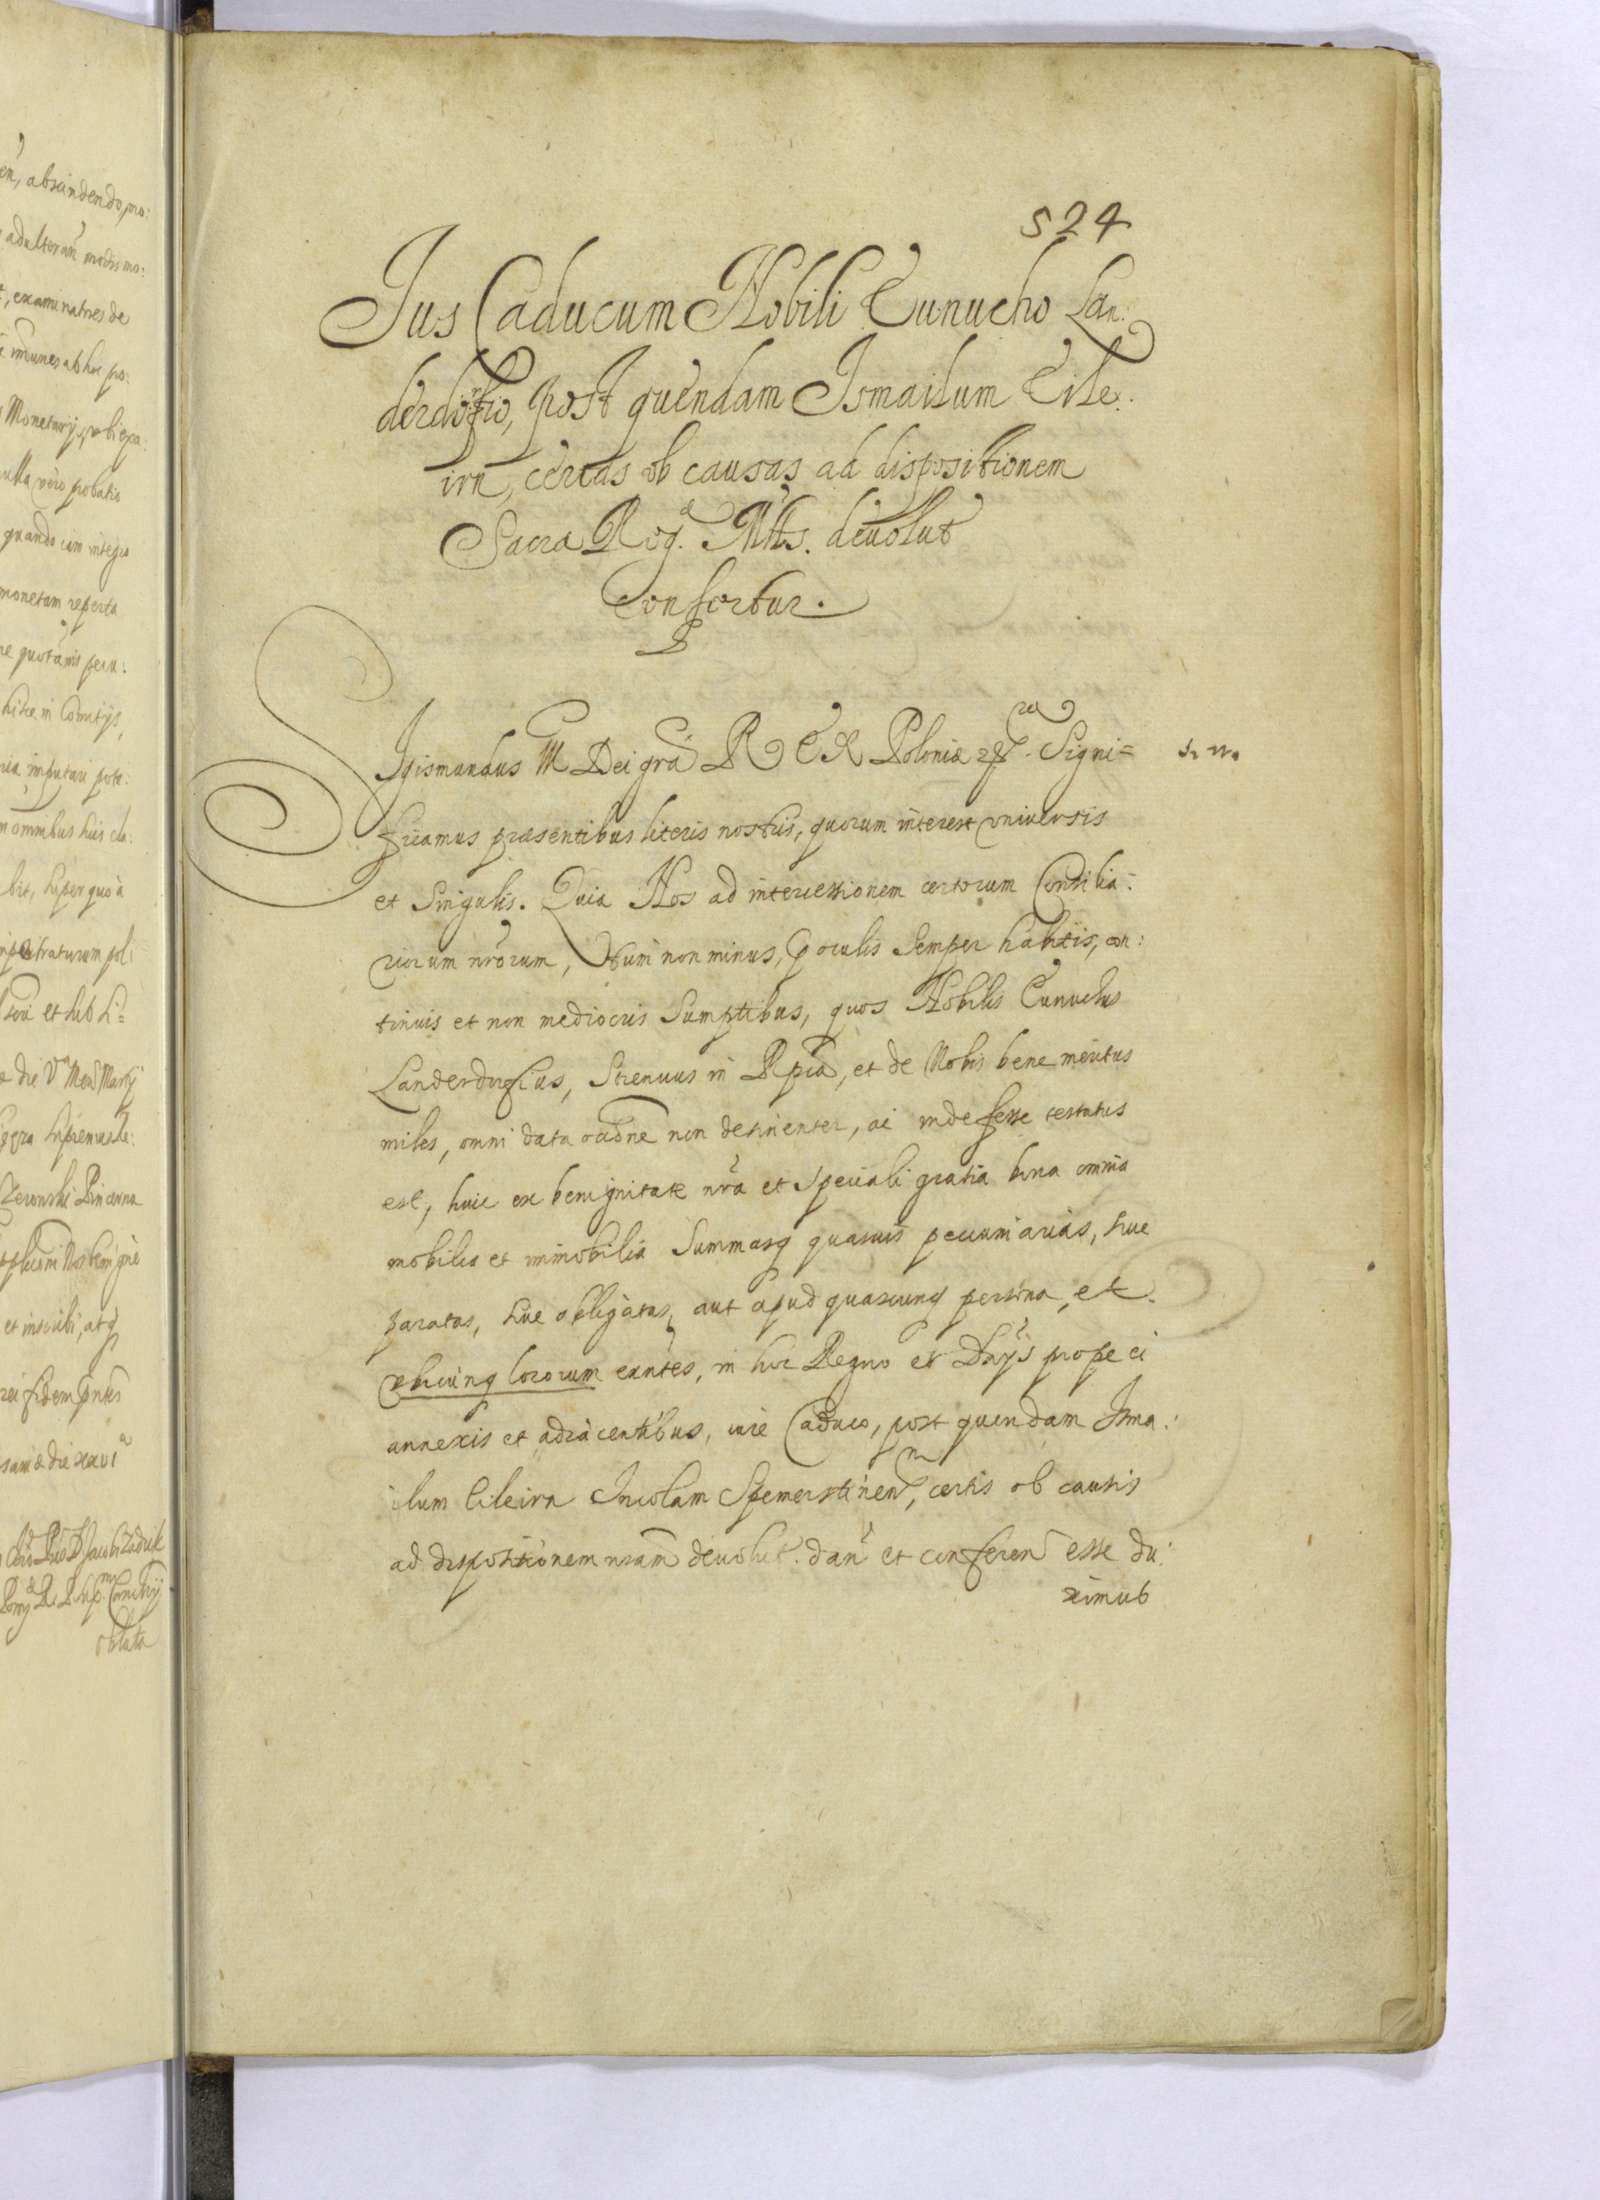 524
Jus Caducum Nobili Eunucho Lan:
derdorffio, post quendam Ismailum Cile:
irn, certas ob causas ad dispositionem
Sacra Reg. Mttis. devolut
Confertur.
Sigismundus III Dei grã REX Poloniæ Signi=
ficamus præsentibus literis nostris, quorum interest universis
et Singulis. Quia Nos ad intercessionem certorum Consilia:
riorum nrõrum, tum non minus, oculis semper habitis, con:
tinuis et non mediocris Sumptibus, quos Nobilis Eunuchus
Landerdorfius, Strenuus in Rpîa, et de Nobis bene meritus
miles, omni data occãone non detinenter, ac indefesse testatus
est, huic ex benignitate nrã et speciali gratia bona omnia
mobilia et immobilia Summasq quasvis pecuniarias, sive
paratas, sive obligatas, aut apud quascunq persona, et
ubicunq locorum exñtes, in hoc Regno et Dnÿs prope ei
annexis et adiacentibus, iure Caduco, post quendam Isma:
ilum Cileirn Incolam certis ob causis
ad dispositionem nram devolut. dañ et conferen esse du:
ximus
en, abscindendo, mo:
adulterañ modis mo:
, examinatores de
Monetarÿ
vero probatio
quando cum integro
monetam reperta
quotannis pecu:
in Comitÿs,
imputari pote:
omnibus huis
super quo a
impetraturum
et sub
die Vta Mens Martÿ
supremus
Pincerna
Nos benigne
et inscribi, atq
fidem
die xxvi
Jacobi Zadzik
oblata